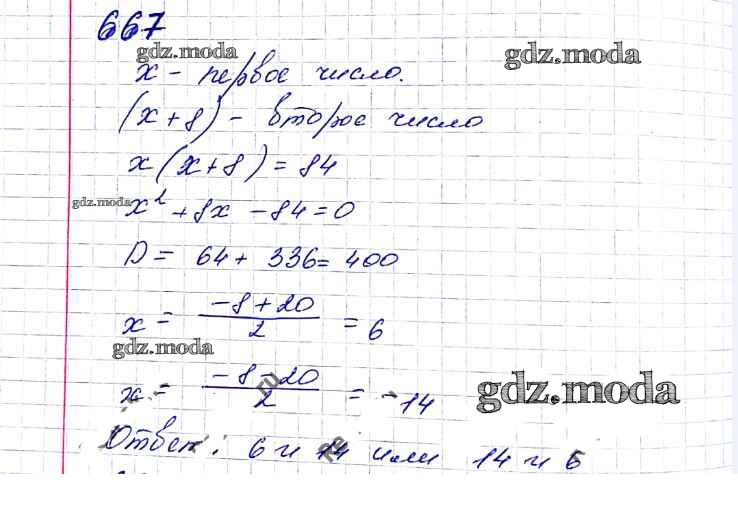 667
gdz.moda
gdz.moda
x - первое число.
(x+8) - второе число
x(x+8)=84
gdz.moda
x² + 8x - 84 = 0
D = 64 + 336 = 400
x = \frac{-8+20}{2} = 6
gdz.moda
x = \frac{-8-20}{2} = -14
gdz.moda
Ответ: 6 и 14 или 14 и 6